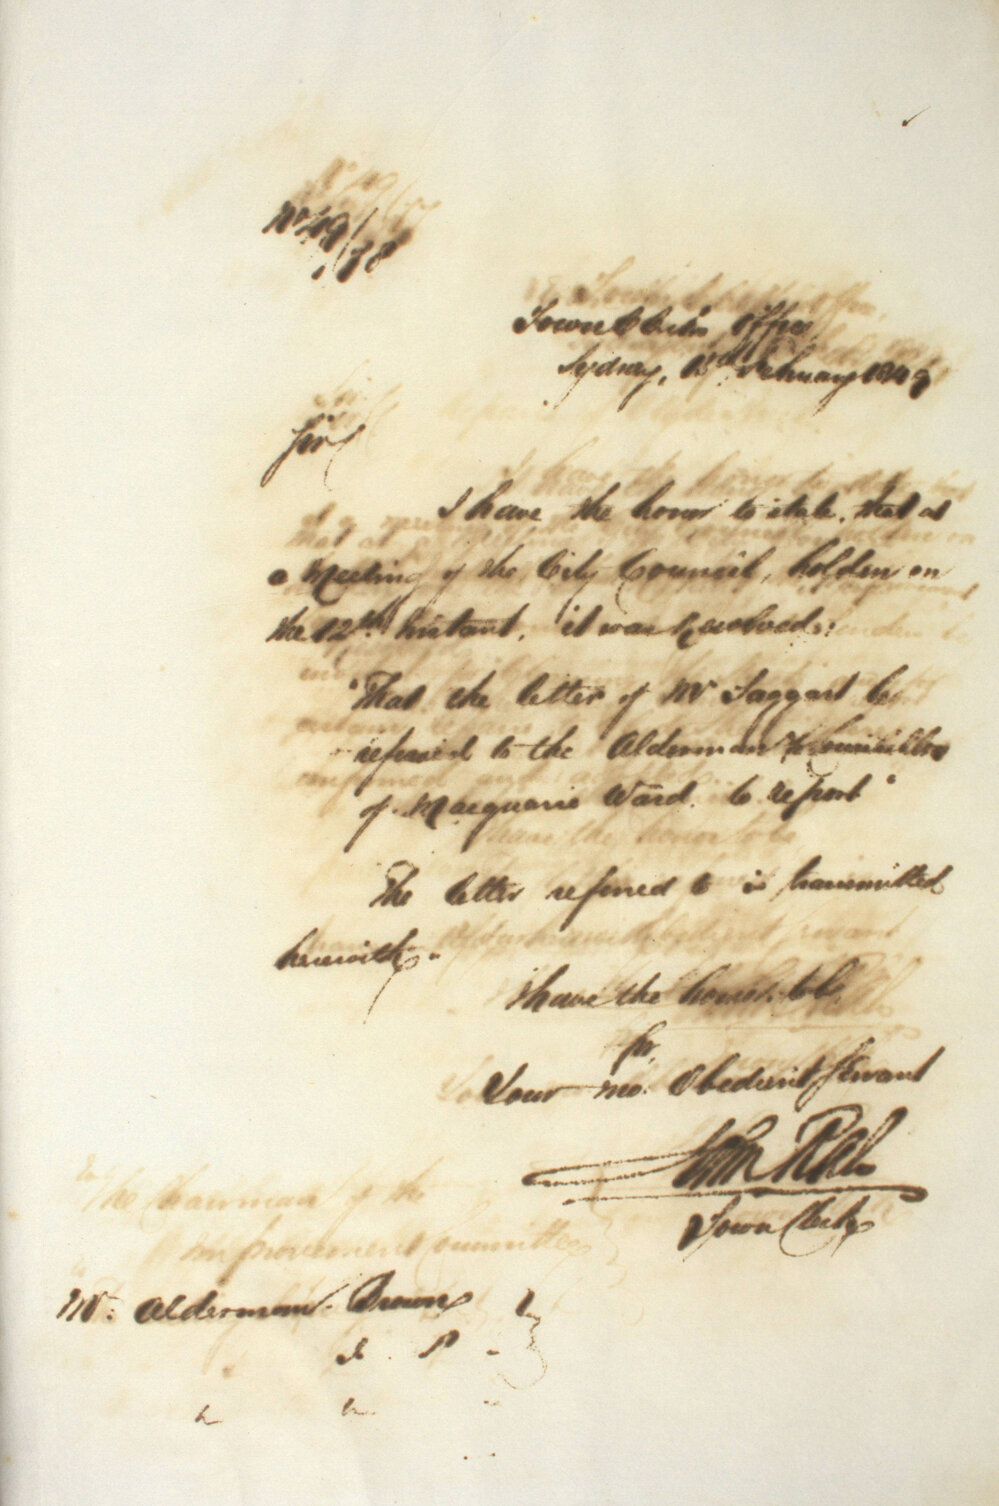 No 49/38
Town Clerk's Office
Sydney, 13th February 1849
Sir
I have the honor to state, that at
a Meeting of the City Council, holden on
the 12th Instant, it was Resolved:
"That the letter of Mr Taggart be
referred to the Alderman & Councillors
of Macquarie Ward to report"
The letter referred to is transmitted
herewith.
I have the honor to be
Sir,
Your mo. Obedient Servant
John Rae
Town Clerk
Mr. Alderman Brown